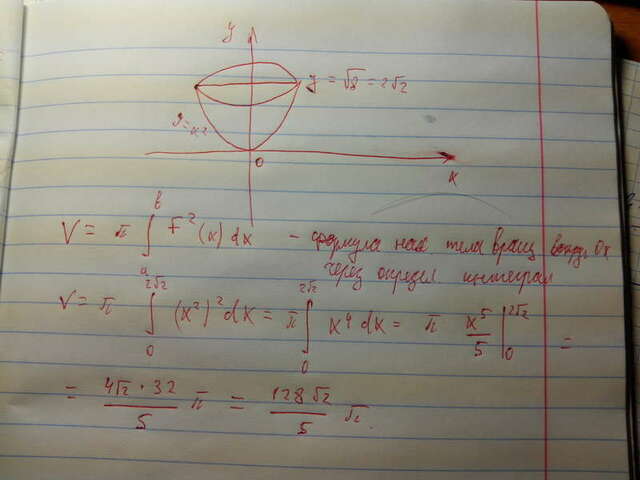 y
y = √8 = 2√2
y = x²
0
x
V = π ∫ₐᵇ f²(x) dx - формула нах тела вращ вокруг Ox
через определ. интеграл
V = π ∫₀^(2√2) (x²)² dx = π ∫₀^(2√2) x⁴ dx = π x⁵/5 |₀^(2√2) =
= (4√2 · 32)/5 π = (128√2)/5 π.